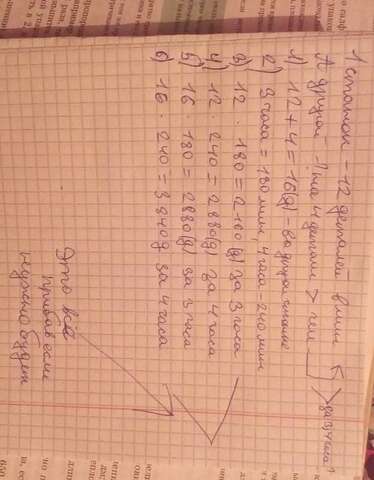 1 станок - 12 деталей в мин
А другой - ? на 4 детали > чем
за 3,4 часа?
1) 12+4=16(д) - во втором станке
2) 3 часа = 180 мин, 4 часа - 240 мин
3) 12 · 180 = 2160(д) за 3 часа
4) 12 · 240 = 2880(д) за 4 часа
5) 16 · 180 = 2880(д) за 3 часа
6) 16 · 240 = 3840д за 4 часа
Это всё
прибав если
нужно будет